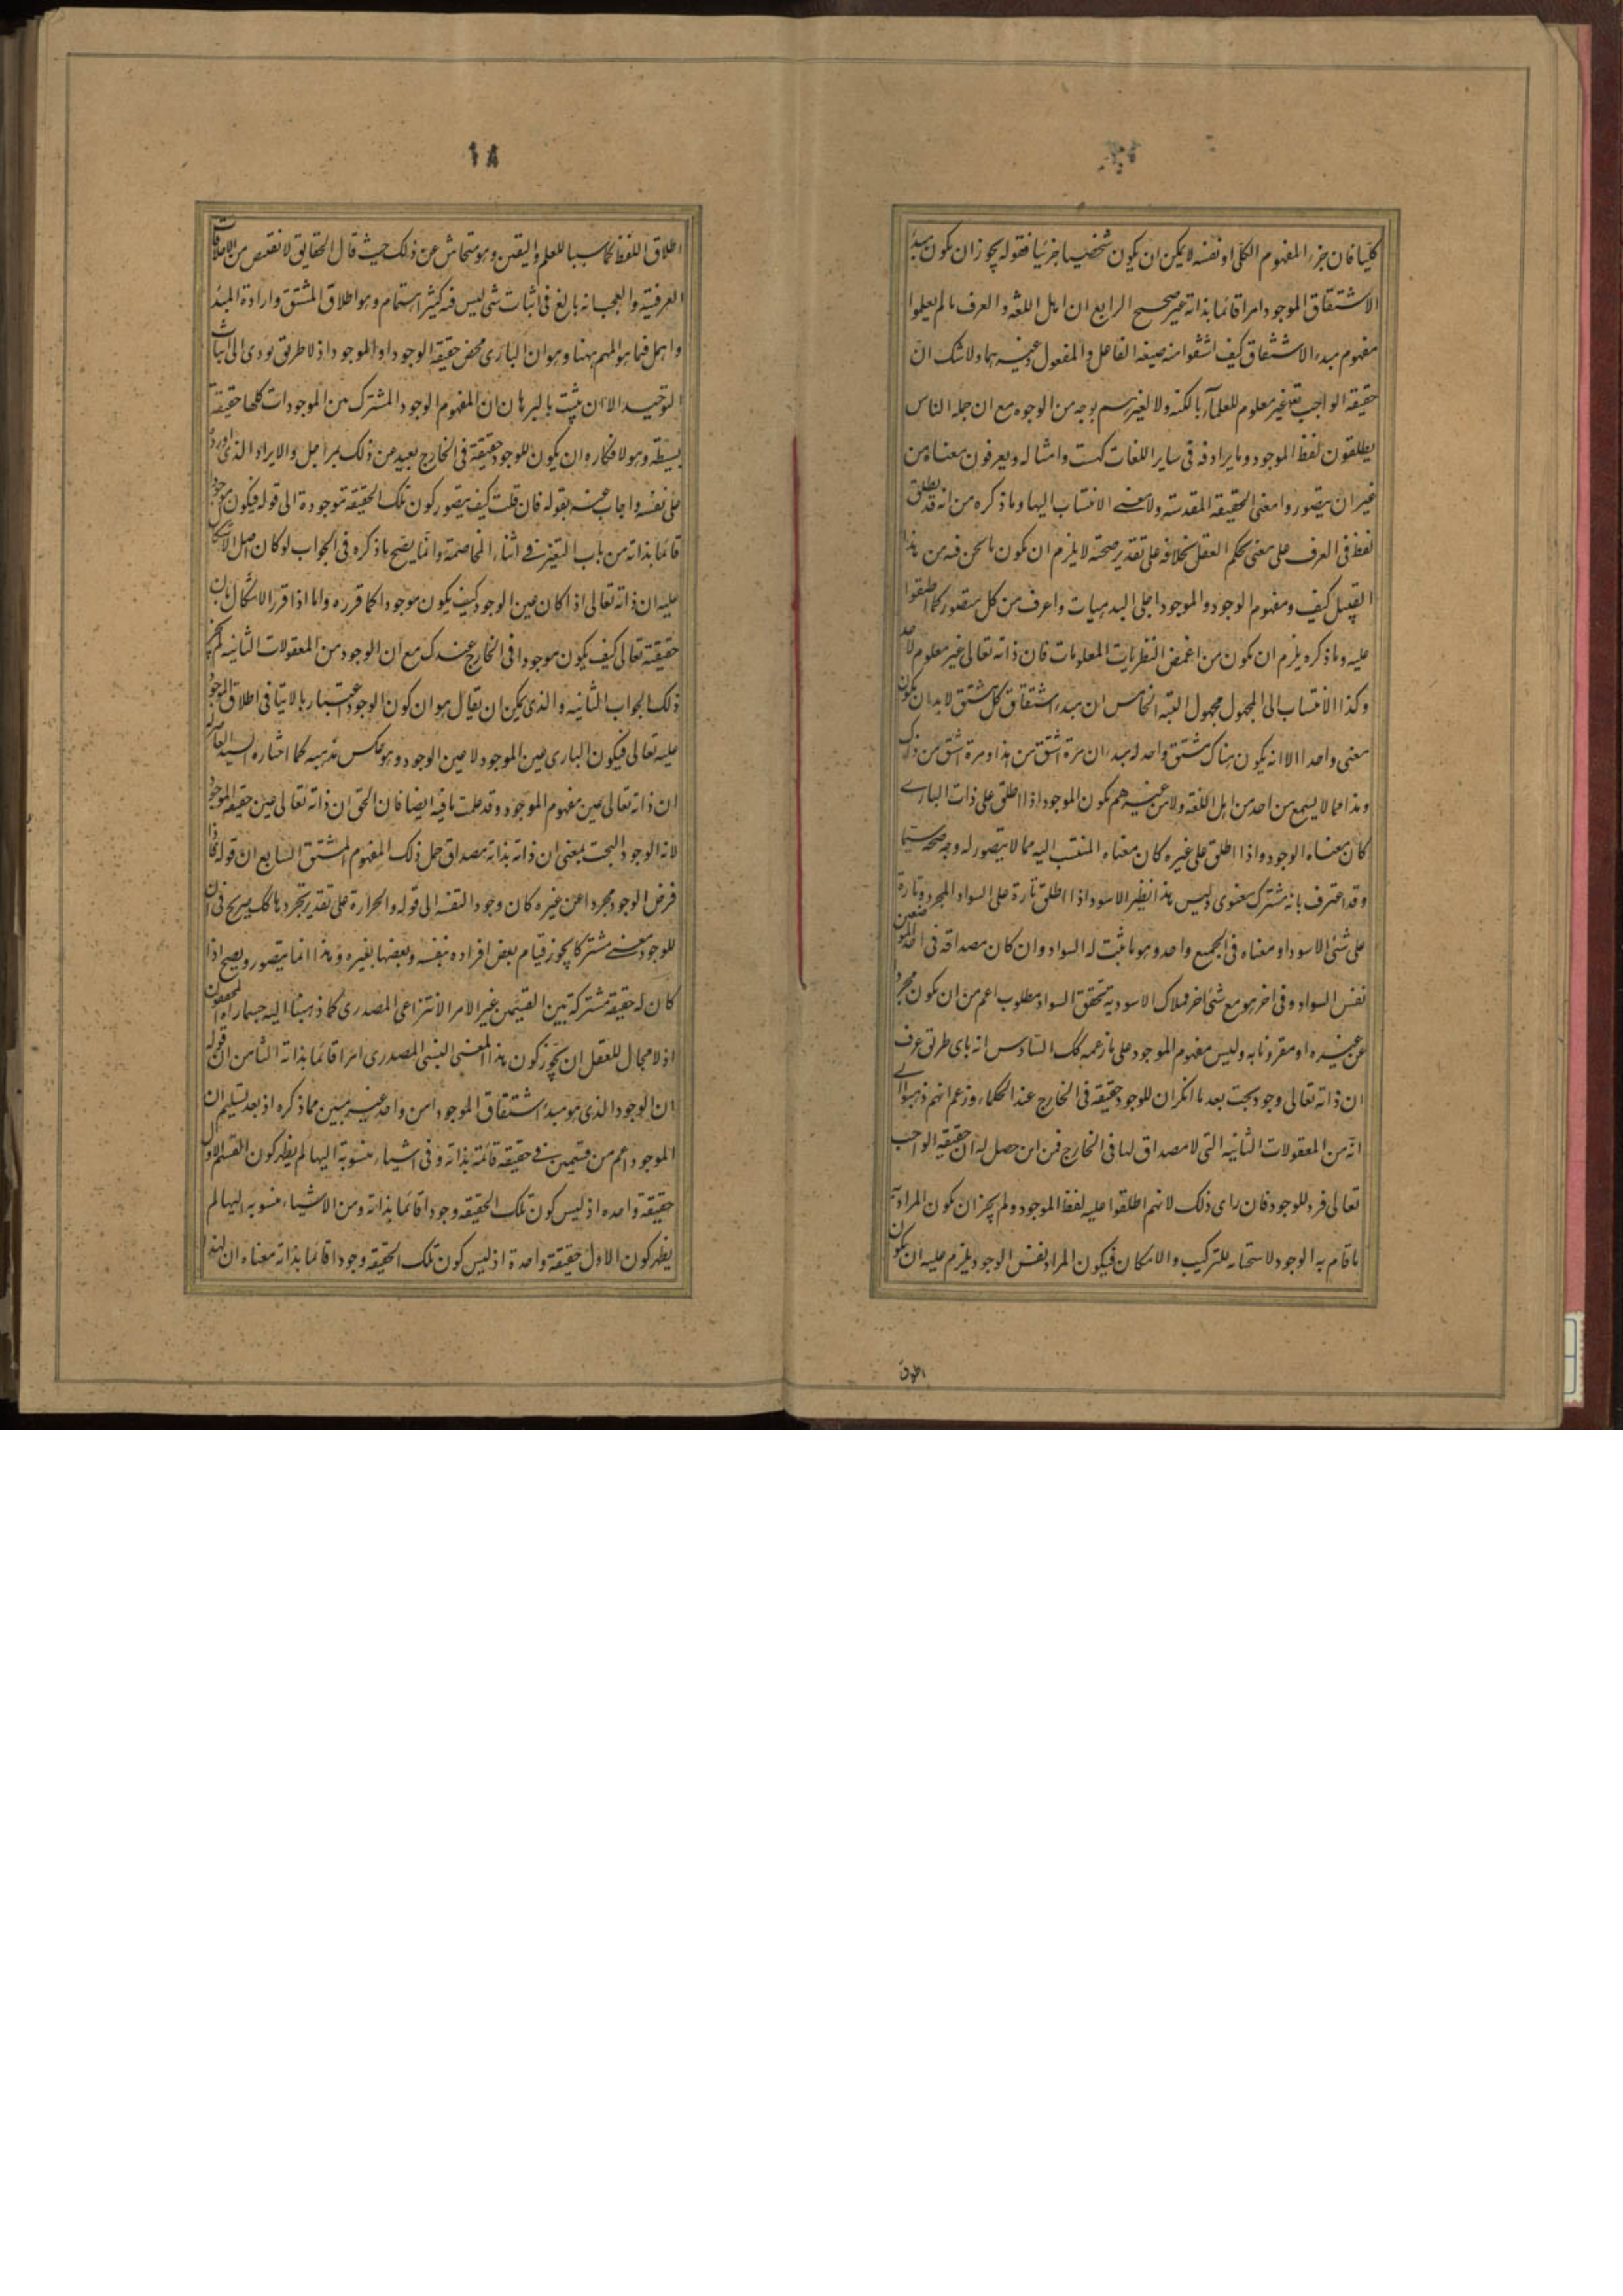 كليا فان جزء المفهوم الكلى او نفسه لا يمكن ان يكون شخصيا جزئيا فقوله يجوز ان يكون مبدء
الاشتقاق الموجود امرا قائما بذاته غير صحيح الرابع ان اهل اللغة و العرف ما لم يعلموا
مفهوم مبدء الاشتقاق كيف اشتقوا منه صيغة الفاعل و المفعول و غيرهما ولا شك ان
حقيقة الواجب تعالى غير معلوم للعلماء بالكنه ولا لغيرهم بوجه من الوجوه مع ان جملة الناس
يطلقون لفظ الموجود و ما يرادفه فى ساير اللغات كهست و امثاله و يعرفون معناه من
غير ان يتصوروا معنى الحقيقة المقدسة ولا معنى الانتساب اليها وما ذكره من انه قد يطلق
لفظ فى العرف على معنى يحكم العقل بخلافه على تقدير صحته لا يلزم ان يكون ما نحن فيه من هذا
القبيل كيف و مفهوم الوجود و الموجود اجلى البديهيات و اعرف من كل متصور كما اطبقوا
عليه وما ذكره يلزم ان يكون من اغمض النظريات المعلومات فان ذاته تعالى غير معلوم لاحد
وكذا الانتساب الى المجهول مجهول البتة الخامس ان مبدء اشتقاق كل مشتق لا بد ان يكون
معنى واحدا الا انه يكون هناك مشتق واحد له مبدءان مرة اشتق من هذا و مرة اشتق من ذاك
وهذا مما لا يسمع من احد من اهل اللغة ولا من غيرهم بكون الموجود اذا اطلق على ذات البارى
كان معناه الوجود و اذا اطلق على غيره كان معناه المنتسب اليه مما لا يتصور له وجه صحة سيما
وقد اعترف بانه مشترك معنوى وليس هذا نظير الاسود اذا اطلق تارة على السواد المجرد و تارة
على شئ الاسود او معناه فى الجميع واحد و هو ما ثبت له السواد و ان كان مصداقه فى احد الموضعين
نفس السواد و فى اخر هو مع شئ اخر فملاك الاسودية تحقق السواد مطلوب اعم من ان يكون مجردا
عن غيره او مقرونا به وليس مفهوم الموجود على ما زعمه كك السادس انه باى طريق عرف
ان ذاته تعالى وجود بحت بعد ما انكر ان للوجود حقيقة فى الخارج عند الحكماء و زعم انهم ذهبوا الى
انه من المعقولات الثانية التى لا مصداق لها فى الخارج فمن اين حصل له ان حقيقة الواجب
تعالى فرد للوجود فان راى ذلك لانهم اطلقوا عليه لفظ الموجود و لم يجز ان يكون المراد به
ما قام به الوجود لاستحاله للتركيب و الامكان فيكون المراد نفس الوجود يلزم عليه ان يكون
اطلاق
١٨
اطلاق اللفظ كاسبا للعلم و اليقين و هو متحاش عن ذلك حيث قال الحقايق لا تقتنص من الاطلاقات
العرفية و العجب انه بالغ فى اثبات شى ليس فيه كثير اهتمام و هو اطلاق المشتق و ارادة المبدء
و اهمل فيما هو المهم ههنا و هو ان البارى محض حقيقة الوجود او الموجود اذ لا طريق يودى الى اثبات
التوحيد الا ان يثبت بالبرهان ان المفهوم الوجود المشترك من الموجودات كلها حقيقة
بسيطة و هو لانكاره ان يكون للوجود حقيقة فى الخارج بعيد من ذلك بمراحل و الايراد الذى اورده
على نفسه و اجاب عنه بقوله فان قلت كيف يتصور كون تلك الحقيقة موجودة الى قوله فيكون موجودا
قائما بذاته من باب التغير فى اثناء المخاصمة و انما يصح ما ذكره فى الجواب لو كان اصل الاشكال
عليه ان ذاته تعالى اذا كان عين الوجود كيف يكون موجودا كما قرره و اما اذا قرر الاشكال بان
حقيقته تعالى كيف يكون موجودا فى الخارج عندك مع ان الوجود من المعقولات الثانية لم يكن
ذلك الجواب الثانية و الذى يمكن ان يقال هو ان كون الوجود اعتباريا لا ينافى اطلاق الموجود
عليه تعالى فيكون البارى عين الموجود لا عين الوجود و هو عكس مذهبه كما اختاره السيد المعاصر له
ان ذاته تعالى عين مفهوم الموجود و قد علمت ما فيه ايضا فان الحق ان ذاته تعالى عين حقيقة الموجود
لانه الوجود البحت بمعنى ان ذاته بذاته مصداق حمل ذلك المفهوم المشتق السابع ان قوله فاذا
فرض الوجود مجردا عن غيره كان وجودا لنفسه الى قوله و الحرارة على تقدير تجردها كك صريح فى ان
للوجود معنى مشتركا يجوز قيام بعض افراده بنفسه و بعضها بغيره و هذا انما يتصور و يصح اذا
كان له حقيقة مشتركة بين القسمين غير الامر الانتزاعى المصدرى كما ذهبنا اليه جهارا المحققون
اذ لا مجال للعقل ان يجوز كون هذا المعنى النسبى المصدرى امرا قائما بذاته الثامن ان قوله
ان الوجود الذى هو مبدء اشتقاق الموجود امر واحد غير مبين مما ذكره اذ بعد تسليم ان
الموجود اعم من قسمين فى حقيقة قائمة بذاته و فى اشياء منسوبة اليها لم يظهر كون القسم الاول
حقيقة واحده اذ ليس كون تلك الحقيقة وجودا قائما بذاته و من الاشياء منسوبه اليها لم
يظهر كون الاول حقيقة واحدة اذ ليس كون تلك الحقيقة وجودا قائما بذاته معناه ان لهذا